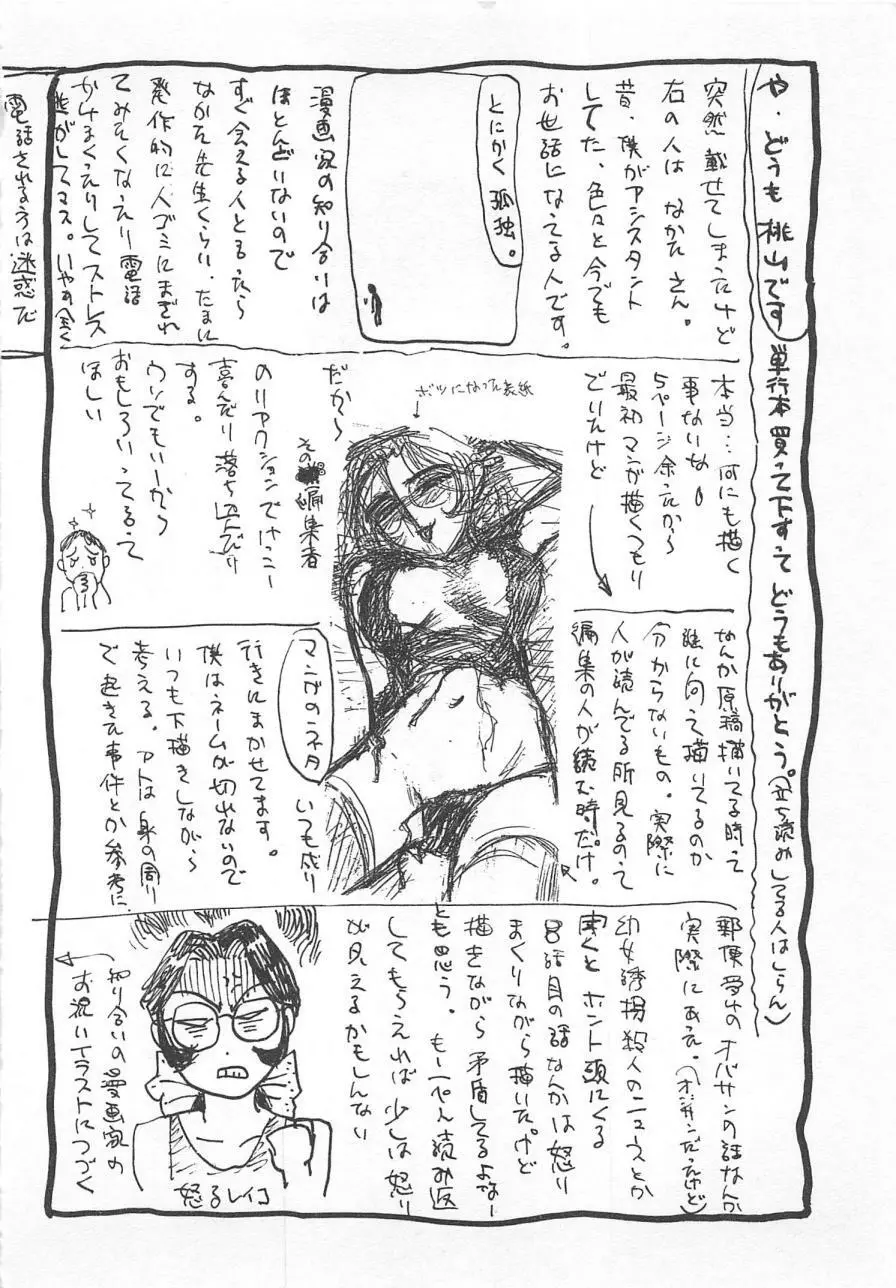 や、どうも 桃山です
単行本買って下すって どうもありがとう。(立ち読みしてる人はしらん)
突然 載せてしまったけど
右の人は なかた さん。
昔、僕がアシスタント
してた、色々と今でも
お世話になってる人です。
とにかく 孤独。
漫画家の知り合いは
ほとんどいないので
すぐ会える人とゆったら
なかた先生くらい、たまに
発作的に人ゴミにまぎれ
てみたくなったり 電話
かけまくったりしてストレス
逃がしてマス。
電話される方は迷惑だ
本当…何にも描く
事ないな。
5ページ余ったから
最初 マンガ描くつもり
でいたけど
なんか原稿描いてる時って
誰に向って描いてるのか
分からないもの。実際に
人が読んでる所見るのって
編集の人が読む時だけ。
ボツになった表紙
だから
その編集者
のリアクションでけっこー
喜んだり落ち込んだり
する。
ウソでもいーから
おもしろいってゆって
ほしい
マンガのネタ
いつも成り
行きにまかせてます。
僕はネームが切れないので
いつも下描きしながら
考える。アトは 身の周り
で起きた事件とか参考に
郵便受けのオバサンの話なんか
実際にあった。(オジサンだったけど)
幼女誘拐殺人のニュースとか
聞くと ホント頭にくる
8話目の話なんかは怒り
まくりながら描いた。けど
描きながら矛盾してるよなー
とも思う。もーぺん読み返
してもらえれば 少しは怒り
が見えるかもしんない
怒るレイコ
知り合いの漫画家の
お祝いイラストにつづく